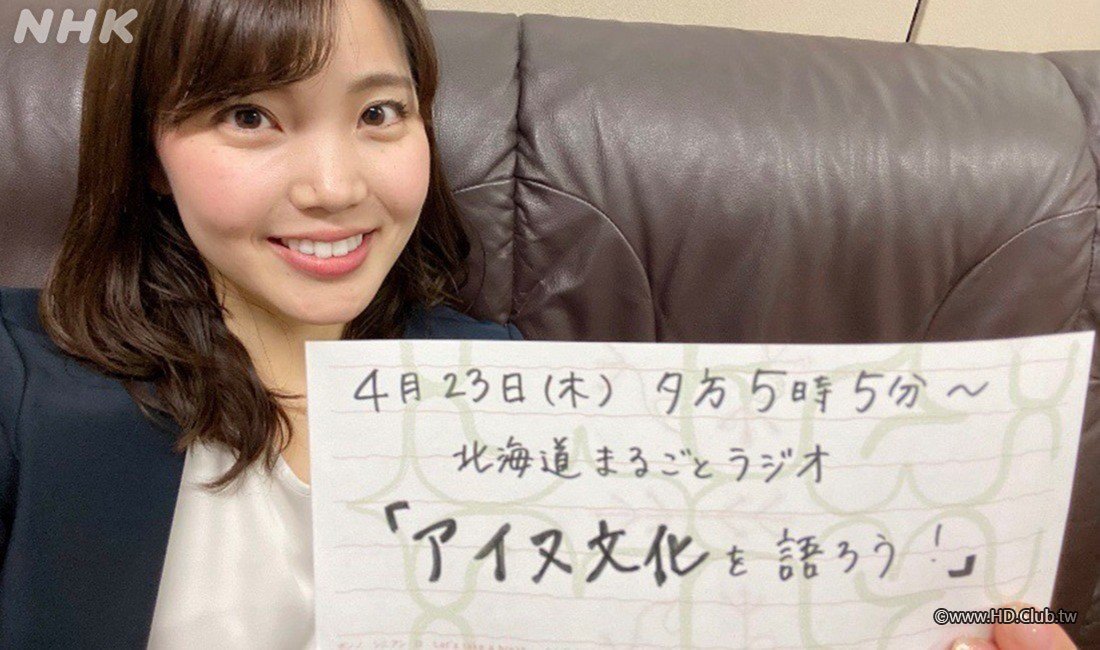 NHK
4月23日(木) 夕方5時5分～
北海道まるごとラジオ
「アイヌ文化を語ろう!」
©www.HD.Club.tw